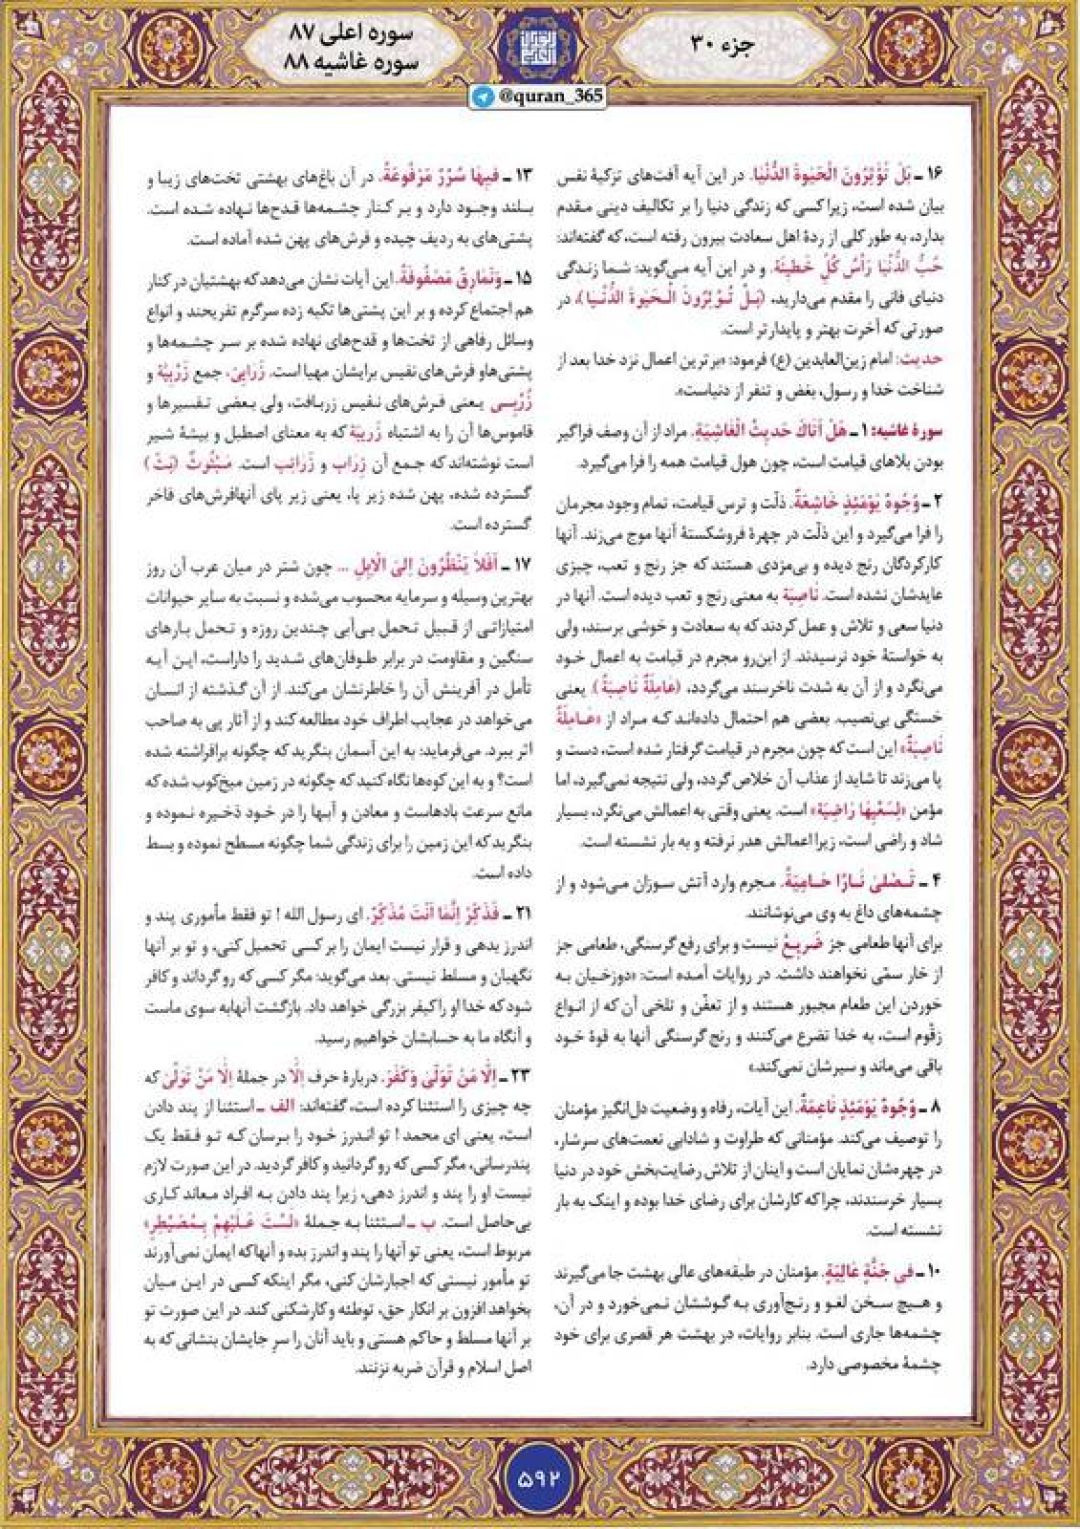 جزء ۳۰
سوره اعلی ۸۷
سوره غاشیه ۸۸
@quran_365
۱۶ ـ بَلْ تُؤْثِرُونَ الْحَیٰوةَ الدُّنْیَا. در این آیه آفت‌های تزکیهٔ نفس
بیان شده است، زیرا کسی که زندگی دنیا را بر تکالیف دینی مقدم
بدارد، به طور کلی از ردهٔ اهل سعادت بیرون رفته است، که گفته‌اند:
حُبُّ الدُّنْیَا رَأْسُ کُلِّ خَطیئَةٍ. و در این آیه می‌گوید: شما زندگی
دنیای فانی را مقدم می‌دارید، (بَلْ تُؤْثِرُونَ الْحَیٰوةَ الدُّنْیَا)، در
صورتی که آخرت بهتر و پایدارتر است.
حدیث: امام زین‌العابدین (ع) فرمود: «برترین اعمال نزد خدا بعد از
شناخت خدا و رسول، بغض و تنفر از دنیاست».
سورهٔ غاشیه: ۱ ـ هَلْ أَتَاكَ حَدیثُ الْغَاشِیَةِ. مراد از آن وصف فراگیر
بودن بلاهای قیامت است، چون هول قیامت همه را فرا می‌گیرد.
۲ ـ وُجُوهٌ یَوْمَئِذٍ خَاشِعَةٌ. ذلّت و ترس قیامت، تمام وجود مجرمان
را فرا می‌گیرد و این ذلّت در چهرهٔ فروشکستهٔ آنها موج می‌زند. آنها
کارکردگان رنج دیده و بی‌مزدی هستند که جز رنج و تعب، چیزی
عایدشان نشده است. نَاصِبَة به معنی رنج و تعب دیده است. آنها در
دنیا سعی و تلاش و عمل کردند که به سعادت و خوشی برسند، ولی
به خواستهٔ خود نرسیدند. از این‌رو مجرم در قیامت به اعمال خود
می‌نگرد و از آن به شدت ناخرسند می‌گردد، (عَامِلَةٌ نَاصِبَةٌ). یعنی
خستگی بی‌نصیب. بعضی هم احتمال داده‌اند که مراد از «عَامِلَةٌ
نَاصِبَةٌ» این است که چون مجرم در قیامت گرفتار شده است، دست و
پا می‌زند تا شاید از عذاب آن خلاص گردد، ولی نتیجه نمی‌گیرد، اما
مؤمن «لِسَعْیِهَا رَاضِیَة» است. یعنی وقتی به اعمالش می‌نگرد، بسیار
شاد و راضی است، زیرا اعمالش هدر نرفته و به بار نشسته است.
۴ ـ تَصْلیٰ نَارًا حَامِیَةً. مجرم وارد آتش سوزان می‌شود و از
چشمه‌های داغ به وی می‌نوشانند.
برای آنها طعامی جز ضَریعْ نیست و برای رفع گرسنگی، طعامی جز
از خار سمّی نخواهند داشت. در روایات آمده است: «دوزخیان به
خوردن این طعام مجبور هستند و از تعفّن و تلخی آن که از انواع
زقّوم است، به خدا تضرع می‌کنند و رنج گرسنگی آنها به قوهٔ خود
باقی می‌ماند و سیرشان نمی‌کند.»
۸ ـ وُجُوهٌ یَوْمَئِذٍ نَاعِمَةٌ. این آیات، رفاه و وضعیت دل‌انگیز مؤمنان
را توصیف می‌کند. مؤمنانی که طراوت و شادابی نعمت‌های سرشار،
در چهره‌شان نمایان است و اینان از تلاش رضایت‌بخش خود در دنیا
بسیار خرسندند، چراکه کارشان برای رضای خدا بوده و اینک به بار
نشسته است.
۱۰ ـ فی جَنَّةٍ عَالِیَةٍ. مؤمنان در طبقه‌های عالی بهشت جا می‌گیرند
و هیچ سخن لغو و رنج‌آوری به گوششان نمی‌خورد و در آن،
چشمه‌ها جاری است. بنابر روایات، در بهشت هر قصری برای خود
چشمهٔ مخصوصی دارد.
۱۳ ـ فیهَا سُرُرٌ مَرْفُوعَةٌ. در آن باغ‌های بهشتی تخت‌های زیبا و
بلند وجود دارد و بر کنار چشمه‌ها قدح‌ها نهاده شده است.
پشتی‌های به ردیف چیده و فرش‌های پهن شده آماده است.
۱۵ ـ وَنَمَارِقُ مَصْفُوفَةٌ. این آیات نشان می‌دهد که بهشتیان در کنار
هم اجتماع کرده و بر این پشتی‌ها تکیه زده سرگرم تفریحند و انواع
وسائل رفاهی از تخت‌ها و قدح‌های نهاده شده بر سر چشمه‌ها و
پشتی‌هاو فرش‌های نفیس برایشان مهیا است. زَرَابِیّ، جمع زَرْبِیَّة و
زُرْبِسی یعنی فرش‌های نفیس زربافت، ولی بعضی تفسیرها و
قاموس‌ها آن را به اشتباه زَریبَة که به معنای اصطبل و بیشهٔ شیر
است نوشته‌اند که جمع آن زِرَاب و زَرَائِب است. مَبْثُوثٌ (بَثّ)
گسترده شده، پهن شده زیر پا، یعنی زیر پای آنهافرش‌های فاخر
گسترده است.
۱۷ ـ أَفَلاَ یَنْظُرُونَ إِلیَ الْإِبِلِ ... چون شتر در میان عرب آن روز
بهترین وسیله و سرمایه محسوب می‌شده و نسبت به سایر حیوانات
امتیازاتی از قبیل تحمل بی‌آبی چندین روزه و تحمل بارهای
سنگین و مقاومت در برابر طوفان‌های شدید را داراست، این آیه
تأمل در آفرینش آن را خاطرنشان می‌کند. از آن گذشته از انسان
می‌خواهد در عجایب اطراف خود مطالعه کند و از آثار پی به صاحب
اثر ببرد. می‌فرماید: به این آسمان بنگرید که چگونه برافراشته شده
است؟ و به این کوه‌ها نگاه کنید که چگونه در زمین میخ‌کوب شده که
مانع سرعت بادهاست و معادن و آبها را در خود ذخیره نموده و
بنگرید که این زمین را برای زندگی شما چگونه مسطح نموده و بسط
داده است.
۲۱ ـ فَذَکِّرْ إِنَّمَا أَنْتَ مُذَکِّرٌ. ای رسول الله ! تو فقط مأموری پند و
اندرز بدهی و قرار نیست ایمان را بر کسی تحمیل کنی، و تو بر آنها
نگهبان و مسلط نیستی. بعد می‌گوید: مگر کسی که رو گرداند و کافر
شود که خدا او راکیفر بزرگی خواهد داد. بازگشت آنهابه سوی ماست
و آنگاه ما به حسابشان خواهیم رسید.
۲۳ ـ إِلّٰا مَنْ تَوَلّیٰ وَکَفَرَ. دربارهٔ حرف إِلّٰا در جملهٔ إِلّٰا مَنْ تَوَلّیٰ که
چه چیزی را استثنا کرده است، گفته‌اند: الف ـ استثنا از پند دادن
است، یعنی ای محمد ! تو اندرز خود را برسان که تو فقط یک
پندرسانی، مگر کسی که رو گردانید و کافر گردید. در این صورت لازم
نیست او را پند و اندرز دهی، زیرا پند دادن به افراد معاند کاری
بی‌حاصل است. ب ـ استثنا به جملهٔ «لَسْتَ عَلَیْهِمْ بِمُصَیْطِرٍ»
مربوط است، یعنی تو آنها را پند و اندرز بده و آنهاکه ایمان نمی‌آورند
تو مأمور نیستی که اجبارشان کنی، مگر اینکه کسی در این میان
بخواهد افزون بر انکار حق، توطئه و کارشکنی کند. در این صورت تو
بر آنها مسلط و حاکم هستی و باید آنان را سرِ جایشان بنشانی که به
اصل اسلام و قرآن ضربه نزنند.
۵۹۲